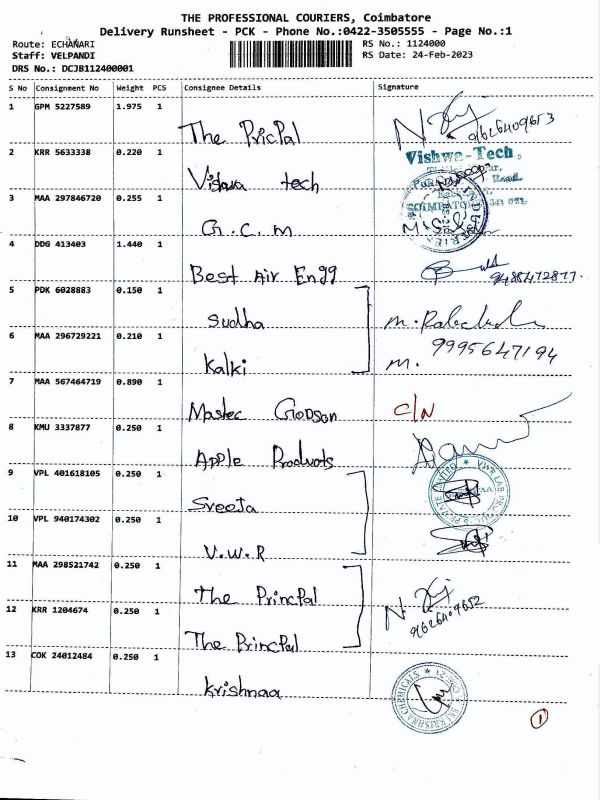 THE PROFESSIONAL COURIERS, Coimbatore
Delivery Runsheet - PCK - Phone No.:0422-3505555 - Page No.:1
Route: ECHANARI RS No.: 1124000
Staff: VELPANDI RS Date: 24-Feb-2023
DRS No.: DCJB112400001
S No Consignment No Weight PCS Consignee Details Signature
1 GPM 5227589 1.975 1
The PricPal 9626409653
2 KRR 5633338 0.220 1 Vishwa-Tech,
Vishwa tech
3 MAA 297846720 0.255 1 COIMBATORE
G.C.M
4 DDG 413403 1.440 1
Best Air Engg 9488472877.
5 PDK 6028883 0.150 1
Sudha
6 MAA 296729221 0.210 1 9995647194
Kalki m.
7 MAA 567464719 0.890 1
Mastec Gobson C/N
8 KMU 3337877 0.250 1
Apple Products
9 VPL 401618105 0.250 1
Sreeja
10 VPL 940174302 0.250 1
V.W.R
11 MAA 298521742 0.250 1
The PrincPal
12 KRR 1204674 0.250 1 9626409652
The PrincPal
13 COK 24012484 0.250 1
Krishnaa SRI KRISHNA CHEMICALS
1